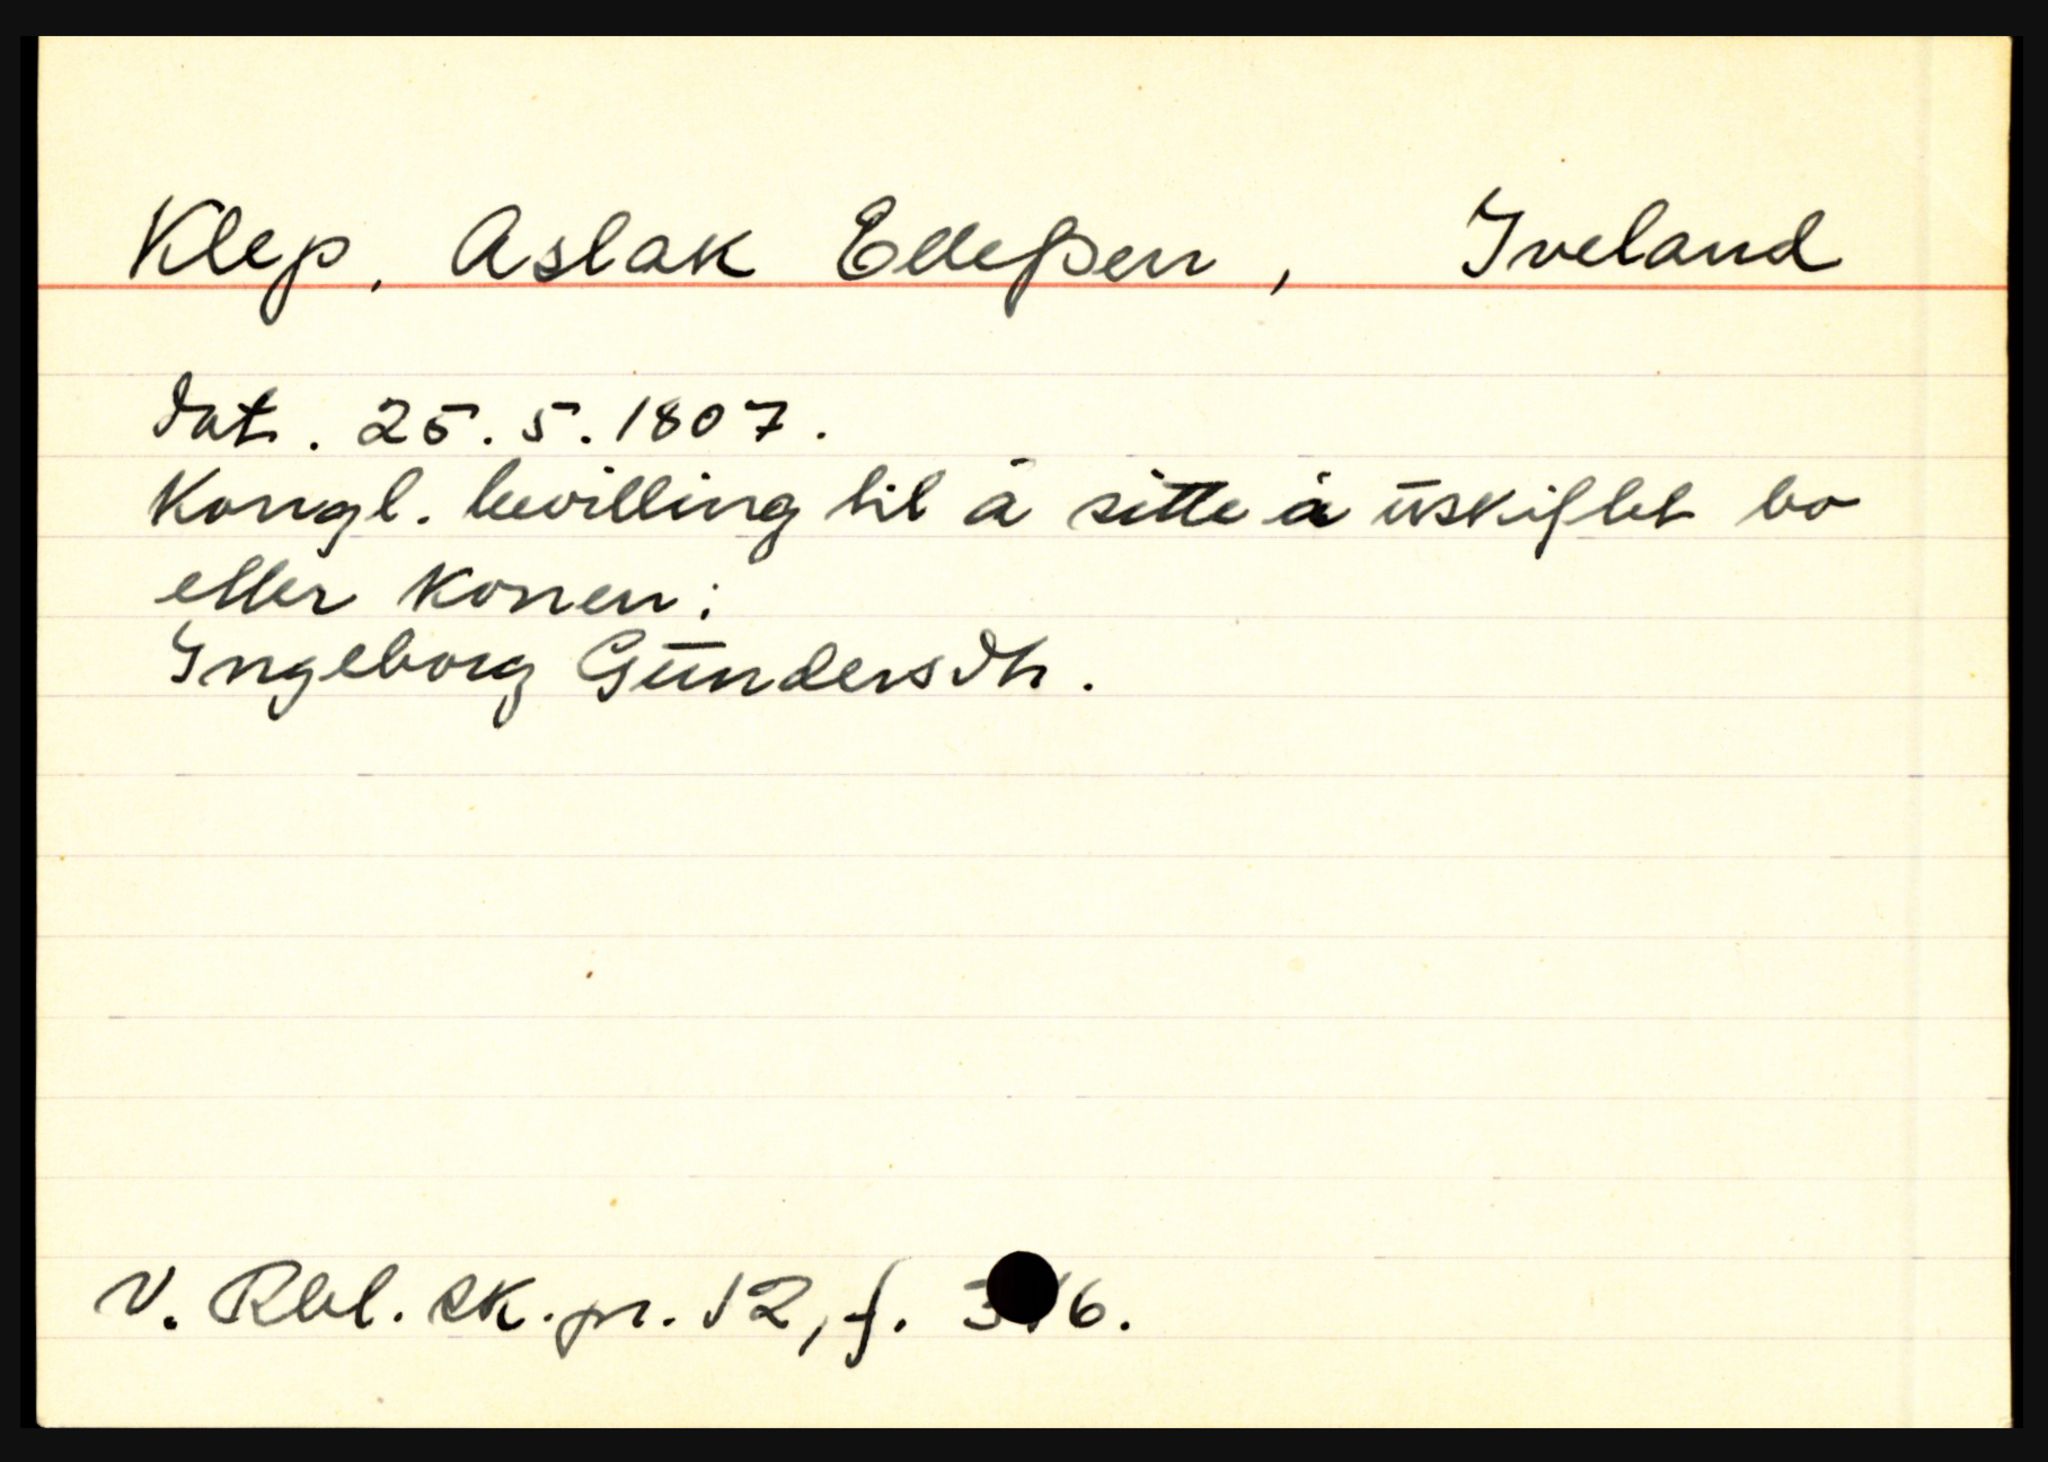 Klep, Aslak Ellefsen, Iveland
dat. 25.5.1807.
Kongl. bevilling til å sitte i uskiftet bo
etter konen:
Ingeborg Gundersdtr.
V. Rbl. sk.pr. 12, f. 6.